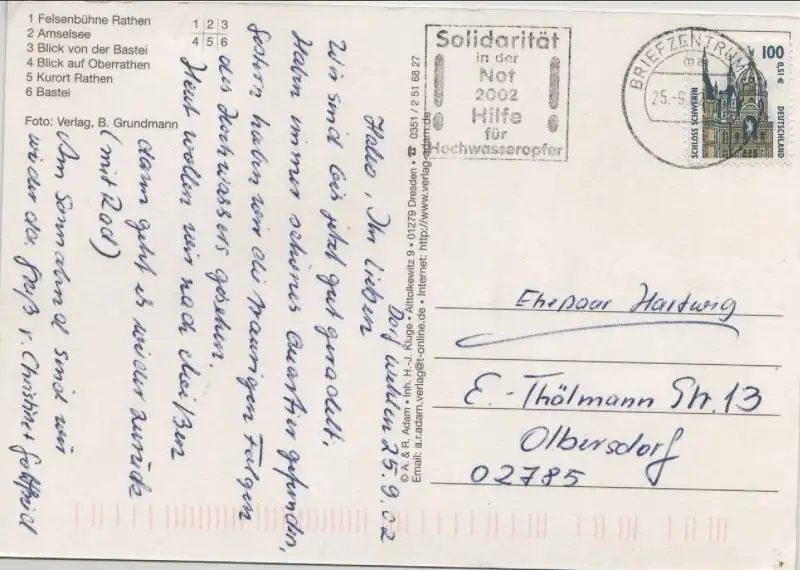 1 Felsenbühne Rathen
2 Amselsee
3 Blick von der Bastei
4 Blick auf Oberrathen
5 Kurort Rathen
6 Bastei
1 2 3
4 5 6
Foto: Verlag, B. Grundmann
Dorf Wehlen 25.9.02
Hallo, Ihr Lieben
Wir sind bis jetzt gut geradelt,
Haben immer schönes Quartier gefunden,
Gestern haben wir die traurigen Folgen
des Hochwassers gesehen.
Heut wollen wir nach Meißen
(mit Rad)
dann geht es wieder zurück
Am Sonnabend sind wir
wieder da. Gruß v. Christine + Gottfried
© A. & R. Adam • Inh. H.-J. Kluge • Alttolkewitz 9 • 01279 Dresden • ☎ 0351 / 2 51 68 27
Email: a.r.adam.verlag@t-online.de • Internet: http://www.verlag-adam.de
Solidarität
in der
Not
2002
Hilfe
für
Hochwasseropfer
BRIEFZENTRUM
25.-9.
100
0,51 €
SCHLOSS SCHWERIN
DEUTSCHLAND
Ehepaar Hartwig
E.-Thölmann Str. 13
Olbersdorf
02785